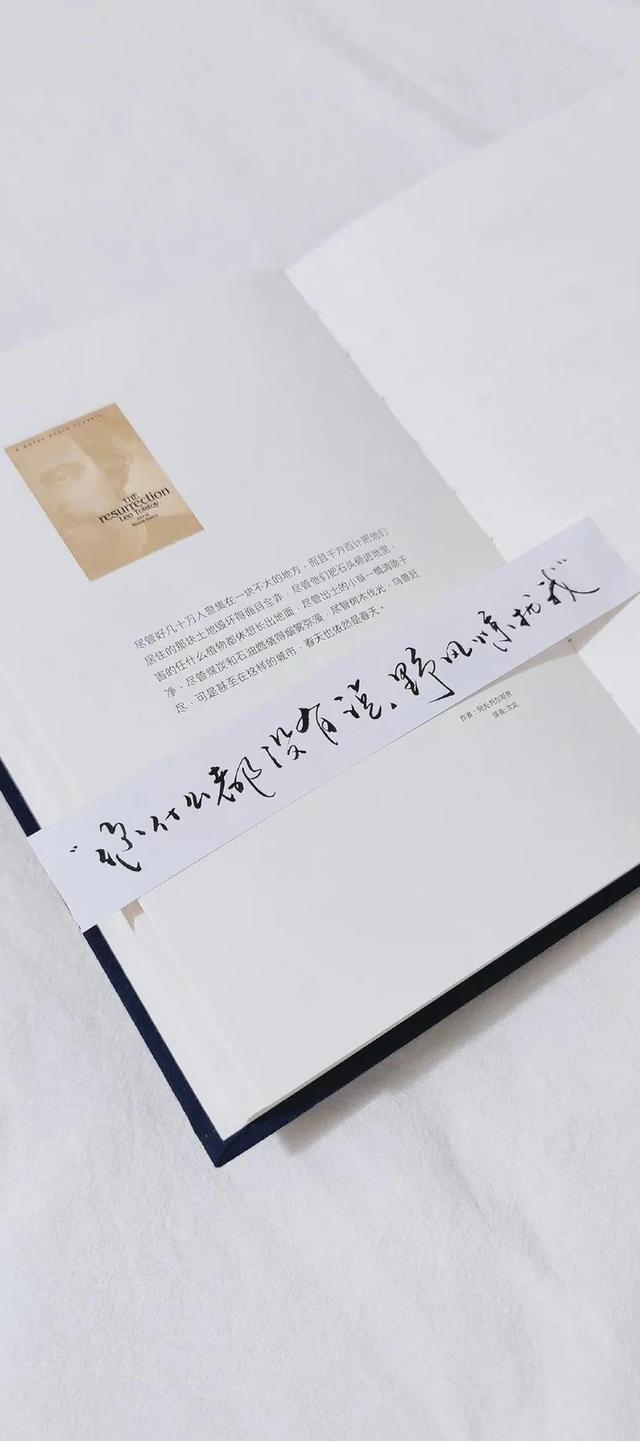 THE
resurrection
Leo Tolstoy
尽管好几十万人聚集在一块不大的地方，而且千方百计把他们
居住的那块土地毁坏得面目全非，尽管他们把石头砸进地里，
害的任什么植物都休想长出地面，尽管出土的小草一概清除干
净，尽管煤炭和石油燃烧得烟雾弥漫，尽管树木伐光，鸟兽赶
尽，可是甚至在这样的城市，春天也依然是春天。
作者：列夫托尔斯泰
译者:汝龙
“你什么都没有说、野风惊扰我”